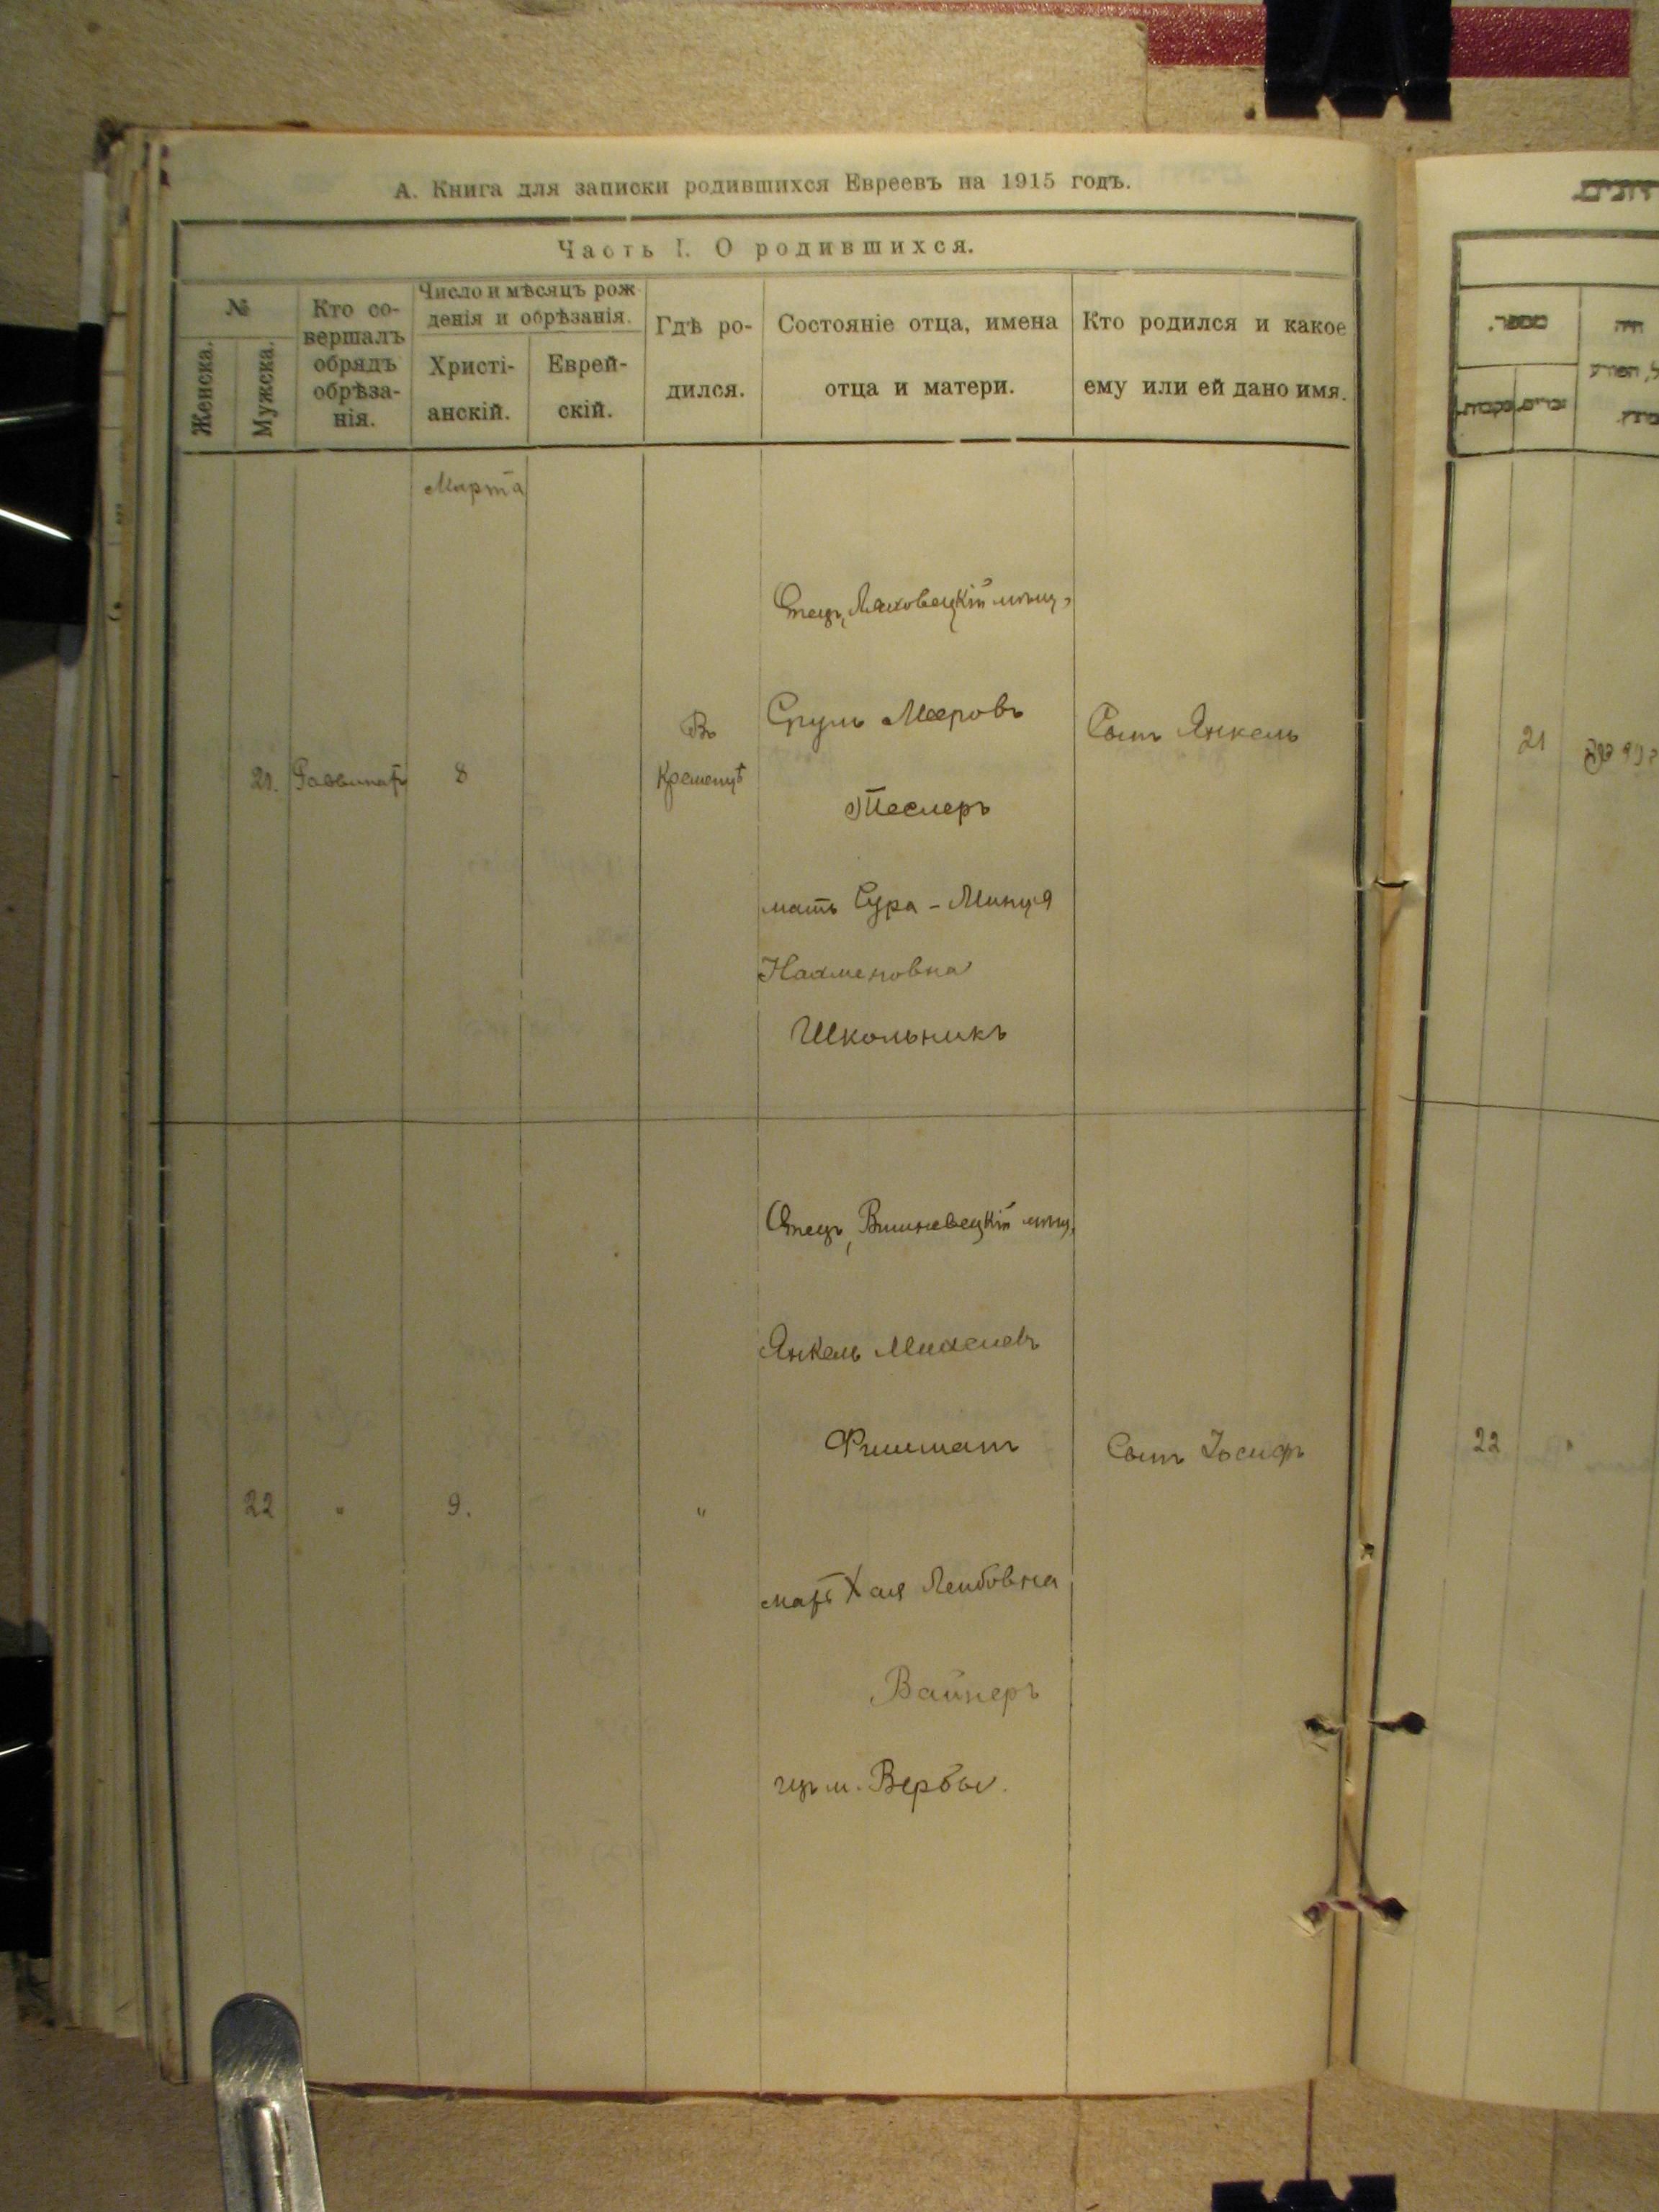 А. Книга для записки родившихся Евреевъ на 1915 годъ.
Часть I. О родившихся.
№
Женска.
Мужска.
Кто со-
вершалъ
обрядъ
обрѣза-
нія.
Число и мѣсяцъ рож
денія и обрѣзанія.
Христі-
анскій.
Еврей-
скій.
Гдѣ ро-
дился.
Состояніе отца, имена
отца и матери.
Кто родился и какое
ему или ей дано имя.
Марта
21.
8
Въ
Кременцѣ
Отецъ, Ляховецкій мѣщ,
Сруль Мееровъ
Теслеръ
мать Сура - Минця
Нахменовна
Школьникъ
Сынъ Янкель
22
"
9.
"
Отецъ, Вишневецкій мѣщ,
Янкель Михелевъ
Фишманъ
мать Хая Лейбовна
Вайнеръ
изъ м. Вербы.
Сынъ Іосифъ
מספר.
זכרים.
נקבות.
היה
21
22
"